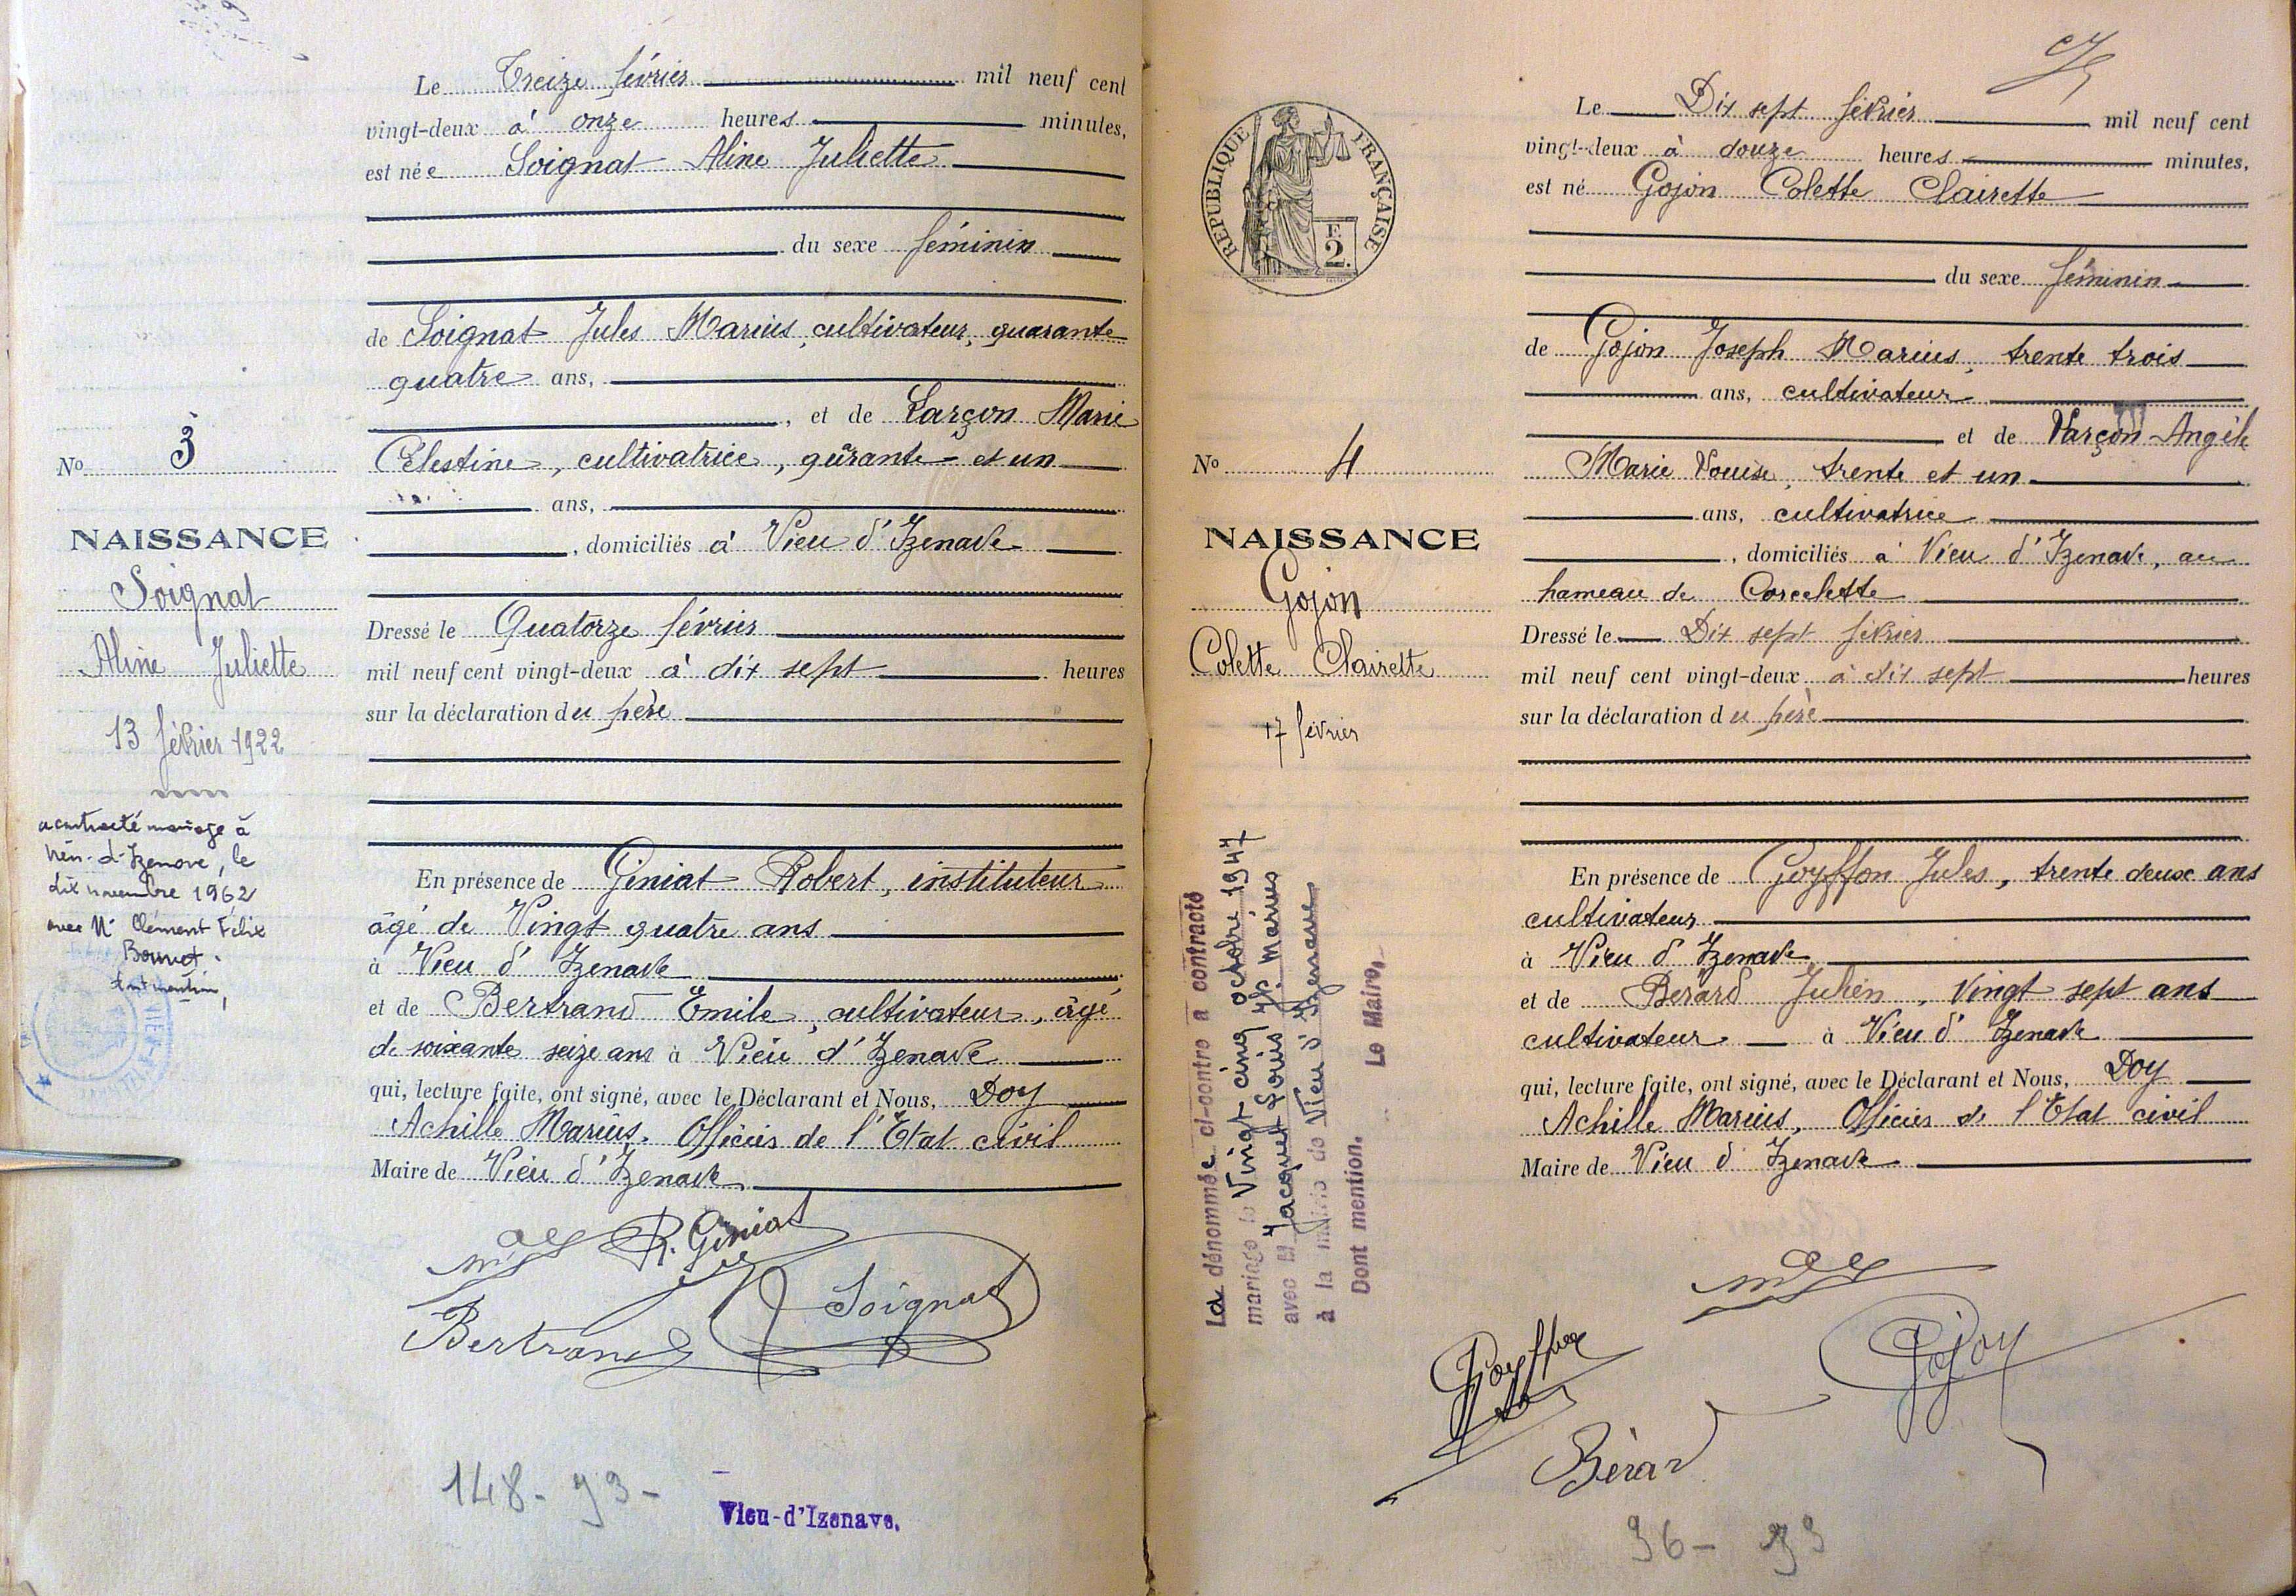 No 3
NAISSANCE
Soignat
Aline Juliette
13 février 1922
a contracté mariage à
Vieu-d'Izenave, le
dix novembre 1962
avec Mr Clément Félix
Bonnet.
Dont mention,
Le Treize février mil neuf cent
vingt-deux à onze heures minutes,
est née Soignat Aline Juliette
du sexe féminin
de Soignat Jules Marius, cultivateur, quarante
quatre ans,
, et de Larçon Marie
Célestine, cultivatrice, qurante et un
ans,
, domiciliés à Vieu d'Izenave
Dressé le Quatorze février
mil neuf cent vingt-deux à dix sept heures
sur la déclaration du père
En présence de Géniat Robert, instituteur
âgé de Vingt quatre ans
à Vieu d'Izenave
et de Bertrand Emile, cultivateur, âgé
de soixante seize ans à Vieu d'Izenave
qui, lecture faite, ont signé, avec le Déclarant et Nous, Doy
Achille Marius, Officier de l'Etat civil
Maire de Vieu d'Izenave
R. Géniat
Soignat
Bertrand
148 - 93 -
Vieu-d'Izenave.
RÉPUBLIQUE FRANÇAISE
F.
2.
No 4
NAISSANCE
Gojon
Colette Clairette
17 février
La dénommée ci-contre a contracté
mariage le Vingt cinq octobre 1947
avec M Jacquet Louis Jh. Marius
à la mairie de Vieu d'Izenave
Dont mention. Le Maire,
Le Dix sept février mil neuf cent
vingt-deux à douze heures minutes,
est né Gojon Colette Clairette
du sexe féminin
de Gojon Joseph Marius, trente trois
ans, cultivateur
et de Varçon Angèle
Marie Louise, trente et un
ans, cultivatrice
, domiciliés à Vieu d'Izenave, au
hameau de Corcelette
Dressé le Dix sept février
mil neuf cent vingt-deux à dix sept heures
sur la déclaration du père
En présence de Goyffon Jules, trente deux ans
cultivateur
à Vieu d'Izenave
et de Bérard Julien, Vingt sept ans
cultivateur à Vieu d'Izenave
qui, lecture faite, ont signé, avec le Déclarant et Nous, Doy
Achille Marius, Officier de l'Etat civil
Maire de Vieu d'Izenave
Goyffon
Gojon
Bérard
96 - 93